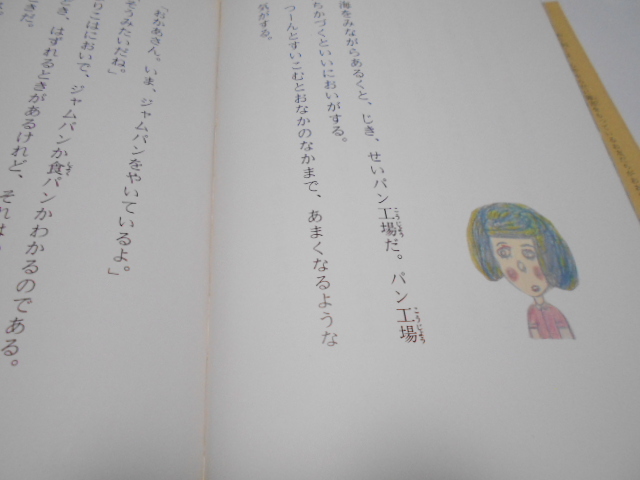 海をみながらあるくと、じき、せいパン工場だ。パン工場
ちかづくといいにおいがする。
つーんとすいこむとおなかのなかまで、あまくなるような
気がする。
「おかあさん。いま、ジャムパンをやいているよ。」
そうみたいだね。」
りこはにおいで、ジャムパンか食パンかわかるのである。
とき、はずれるときがあるけれど、それは
ときだ。